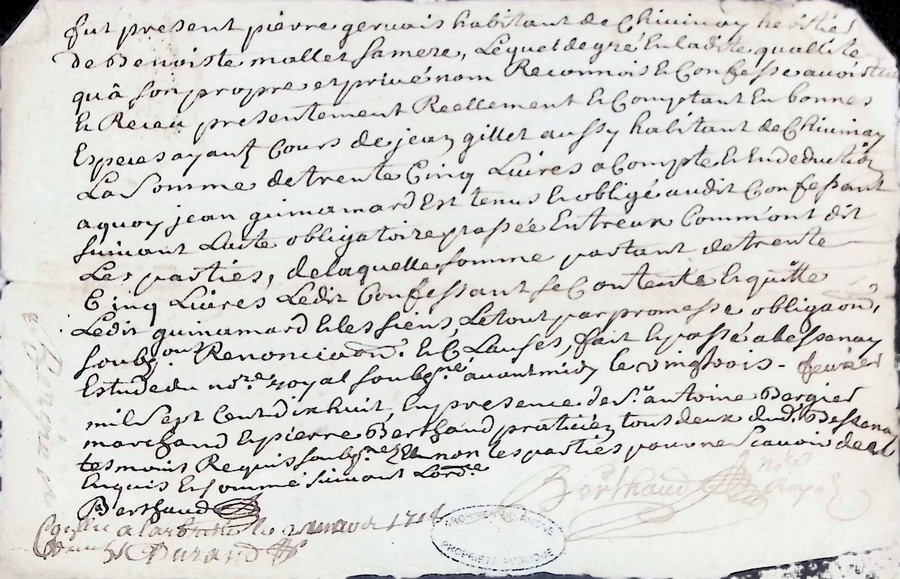 fut present pierre gervais habitant de Chivinay heritier
de Benoiste mallet sa mere, Lequel de gré En ladite quallité
qu'à son propre et privé nom Reconnois Et Confesse avoir
Et Receu presentement Reellement Et Comptant En bonnes
Especes ayant Cours de jean gillet aussy habitant de Chivinay
La Somme de trente Cinq Livres a Compte Et En deduction
a quoy jean guimamard Est tenu Et obligé audit Confessant
suivant L'acte obligatoire passée Entreux Comm'ont dit
Les parties, de laquelle somme partant de trente
Cinq Livres Ledit Confessant se Contente Et quitte
Ledit guimamard Et les siens, Le tout par promesse obligaon,
soubs Renonciaon. Et Clauses, fait Et passé a bessenay
Estude du no.re royal soubs.né avant midy le vingtrois - fevrier
mil sept Cent dix huit, En presence de S.r antoine Bergier
marchand Et pierre Berthaud praticien tous deux dud. Bessenay
tesmoins Requis soubs.nez Et non les parties pour ne scavoir de ce
Enquis Et sommé suivant Lord.e
Berthaud
Berthaud
no.re Royal
Durand
PROPRIETE PUBLIQUE